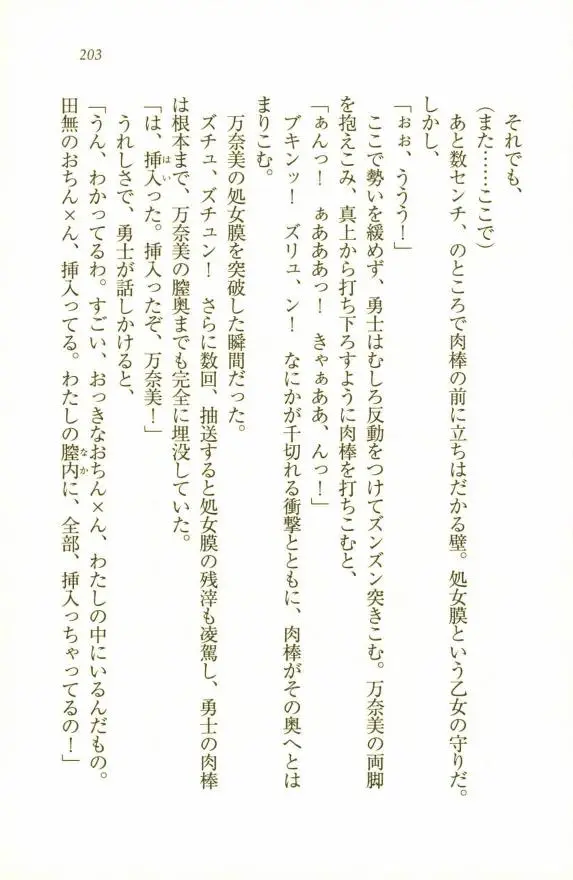 203
それでも、
(また……ここで)
あと数センチ、のところで肉棒の前に立ちはだかる壁。処女膜という乙女の守りだ。
しかし、
「ぉぉ、ううう！」
ここで勢いを緩めず、勇士はむしろ反動をつけてズンズン突きこむ。万奈美の両脚
を抱えこみ、真上から打ち下ろすように肉棒を打ちこむと、
「ぁんっ！　ぁあああっ！　きゃぁああ、んっ！」
ブキンッ！　ズリュ、ン！　なにかが千切れる衝撃とともに、肉棒がその奥へとは
まりこむ。
万奈美の処女膜を突破した瞬間だった。
ズチュ、ズチュン！　さらに数回、抽送すると処女膜の残滓も凌駕し、勇士の肉棒
は根本まで、万奈美の膣奥までも完全に埋没していた。
「は、挿入った。挿入ったぞ、万奈美！」
うれしさで、勇士が話しかけると、
「うん、わかってるわ。すごい、おっきなおちん×ん、わたしの中にいるんだもの。
田無のおちん×ん、挿入ってる。わたしの膣内に、全部、挿入っちゃってるの！」